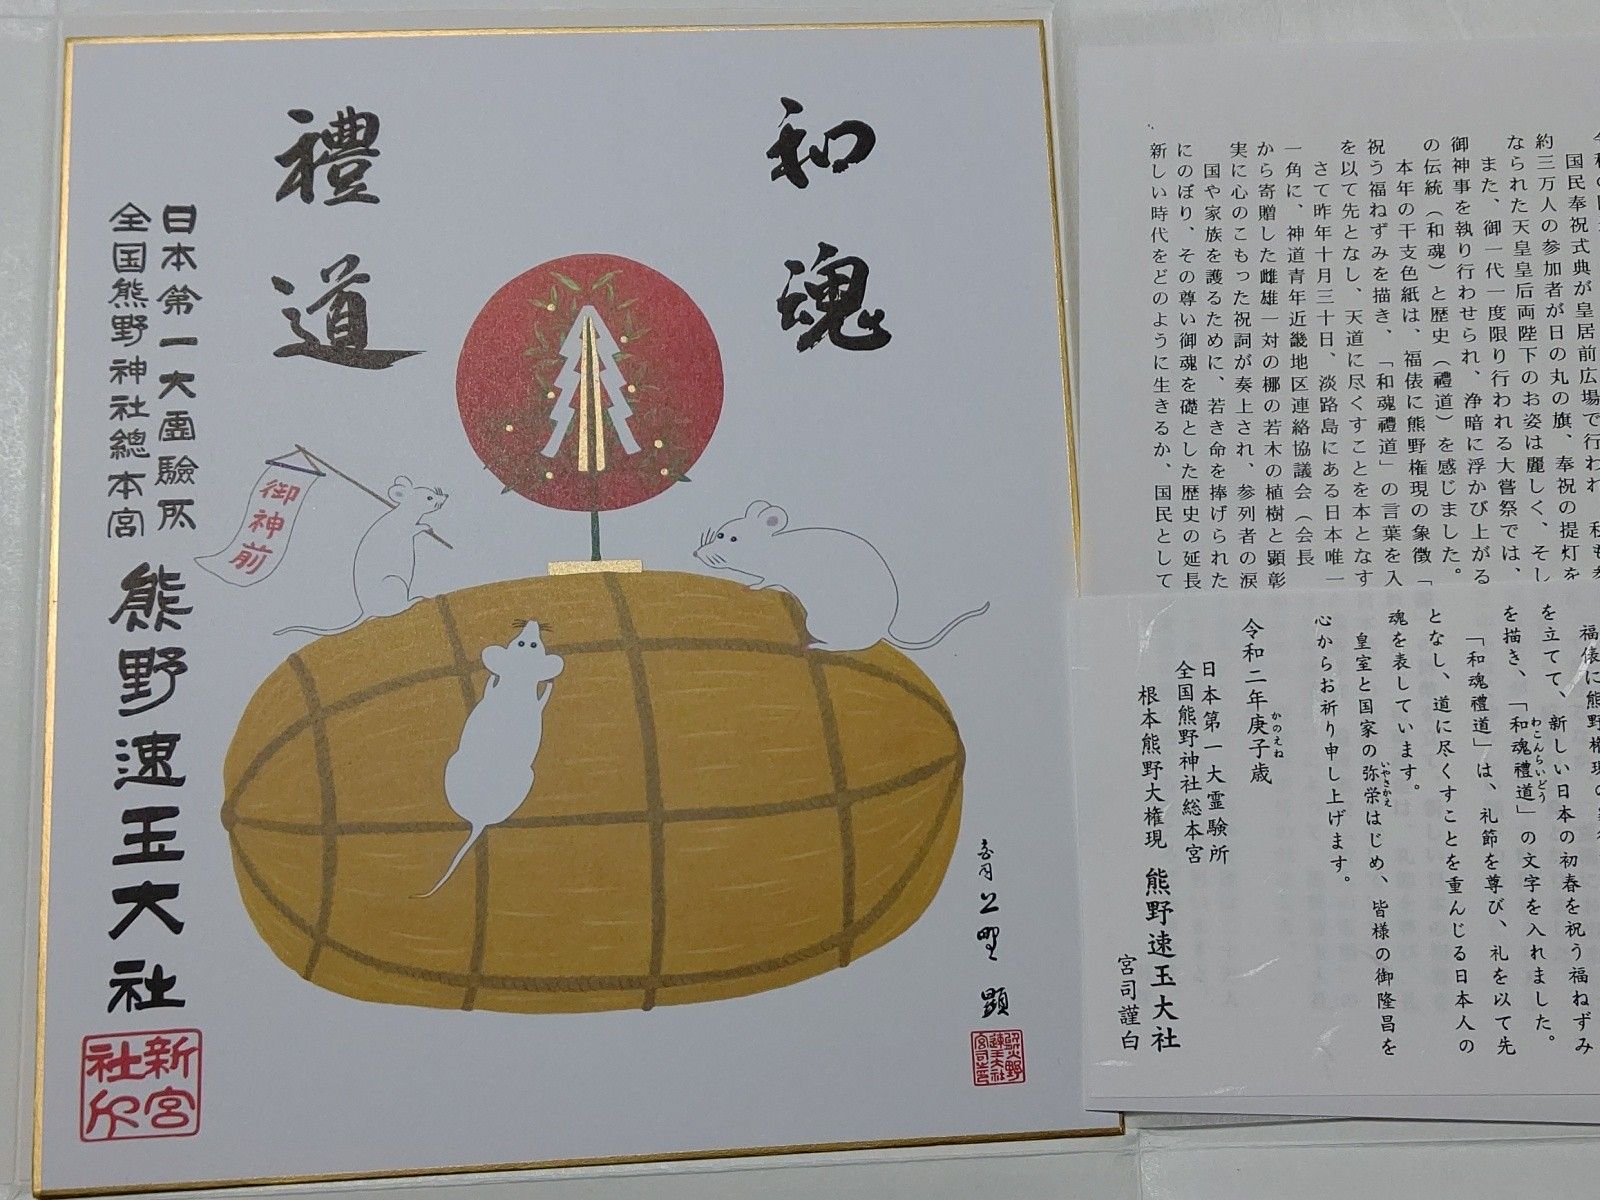 和魂
禮道
日本第一大霊験所
全国熊野神社總本宮
熊野速玉大社
御神前
宮司
上野 顯
新宮
社印
国民奉祝式典が皇居前広場で行われ
約三万人の参加者が日の丸の旗、奉祝の提灯を
なられた天皇皇后両陛下のお姿は麗しく、そし
また、御一代一度限り行われる大嘗祭では、
御神事を執り行わせられ、浄暗に浮かび上がる
の伝統（和魂）と歴史（禮道）を感じました。
本年の干支色紙は、福俵に熊野権現の象徴「
祝う福ねずみを描き、「和魂禮道」の言葉を入
を以て先となし、天道に尽くすことを本となす
さて昨年十月三十日、淡路島にある日本唯一
一角に、神道青年近畿地区連絡協議会（会長
から寄贈した雌雄一対の梛の若木の植樹と顕彰
実に心のこもった祝詞が奏上され、参列者の涙
国や家族を護るために、若き命を捧げられた
にのぼり、その尊い御魂を礎とした歴史の延長
新しい時代をどのように生きるか、国民として
福俵に熊野権現の
を立てて、新しい日本の初春を祝う福ねずみ
を描き、「和魂禮道」の文字を入れました。
わこんらいどう
「和魂禮道」は、礼節を尊び、礼を以て先
となし、道に尽くすことを重んじる日本人の
魂を表しています。
皇室と国家の弥栄はじめ、皆様の御隆昌を
いやさかえ
心からお祈り申し上げます。
令和二年庚子歳
かのえね
日本第一大霊験所
全国熊野神社総本宮
根本熊野大権現 熊野速玉大社
宮司謹白